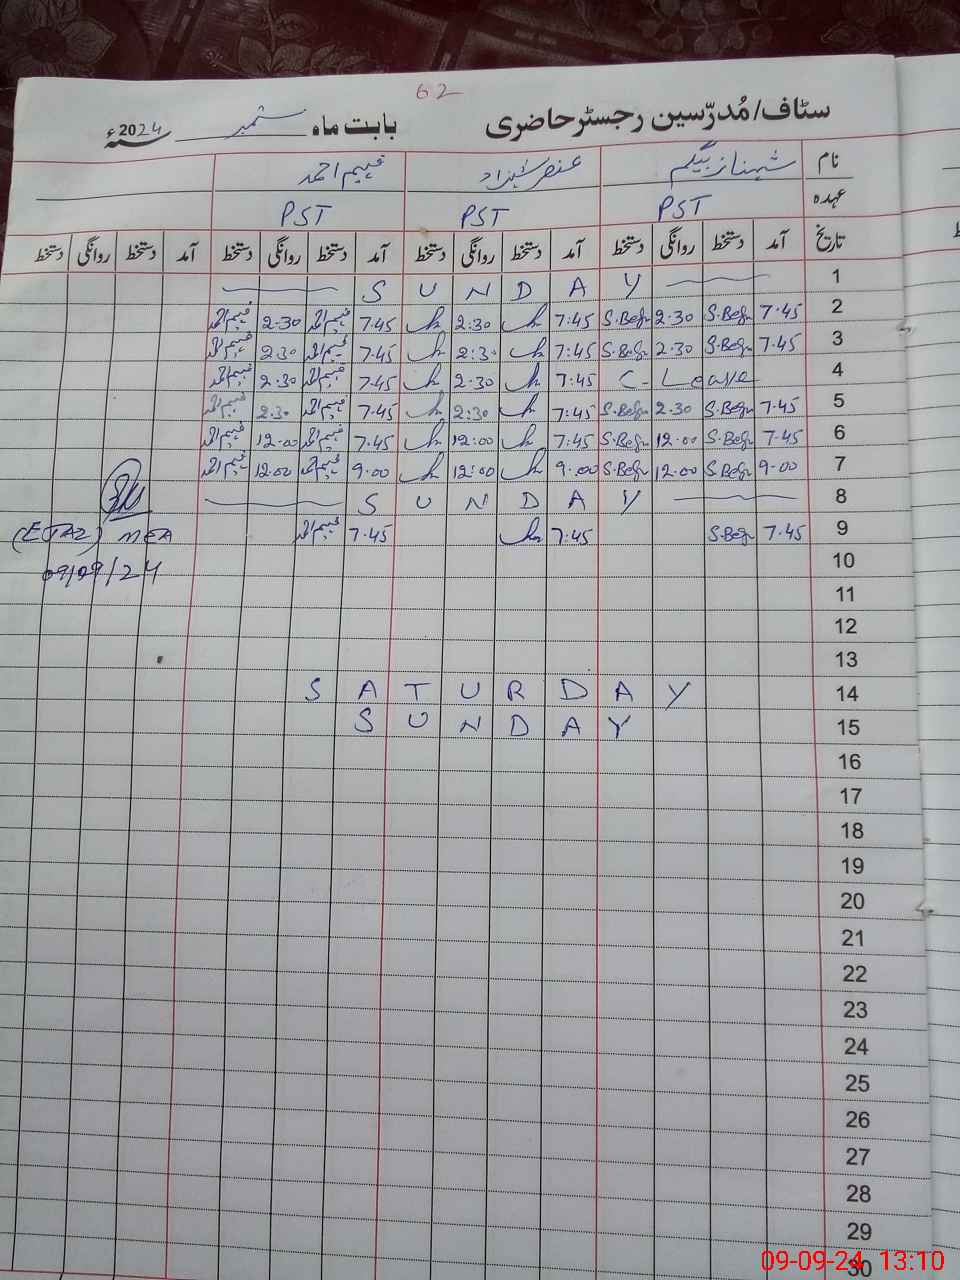 62
سٹاف/مُدرّسین رجسٹر حاضری بابت ماہ ستمبر سنہ 2024ء
نام شہناز بیگم عنصر شہزاد فہیم احمد
عہدہ PST PST PST
تاریخ آمد دستخط روانگی دستخط آمد دستخط روانگی دستخط آمد دستخط روانگی دستخط آمد دستخط روانگی دستخط
1 SUNDAY
2 7.45 S.Begm 2.30 S.Begm 7:45 2:30 7.45 فہیم احمد 2.30 فہیم احمد
3 7.45 S.Begm 2.30 S.Begm 7:45 2:30 7.45 فہیم احمد 2.30 فہیم احمد
4 C-Leave 7:45 2:30 7.45 فہیم احمد 2.30 فہیم احمد
5 7.45 S.Begm 2.30 S.Begm 7:45 2:30 7.45 فہیم احمد 2.30 فہیم احمد
6 7.45 S.Begm 12.00 S.Begm 7:45 12:00 7.45 فہیم احمد 12.00 فہیم احمد
7 9.00 S.Begm 12.00 S.Begm 9:00 12:00 9.00 فہیم احمد 12.00 فہیم احمد
8 SUNDAY
9 7.45 S.Begm 7:45 7.45 فہیم احمد
MEA
09/09/24
10
11
12
13
14 SATURDAY
15 SUNDAY
16
17
18
19
20
21
22
23
24
25
26
27
28
29
30
09-09-24 13:10